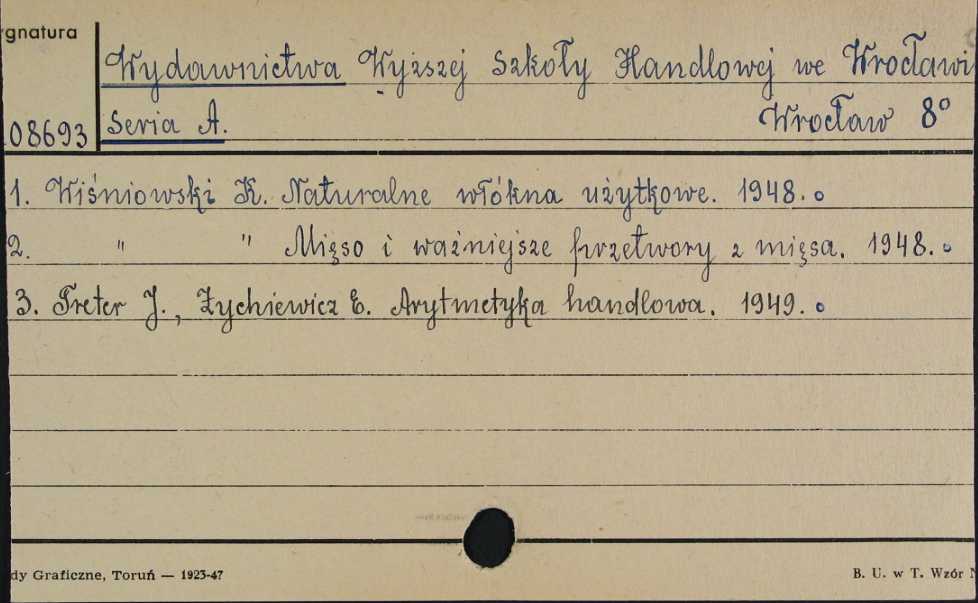 ygnatura
Wydawnictwa Wyższej Szkoły Handlowej we Wrocławi
08693 Seria A. Wrocław 8°
1. Wiśniowski K. Naturalne włókna użytkowe. 1948.
2. " " Mięso i ważniejsze przetwory z mięsa. 1948.
3. Treter J., Zychiewicz E. Arytmetyka handlowa. 1949.
dy Graficzne, Toruń — 1923-47 B. U. w T. Wzór N